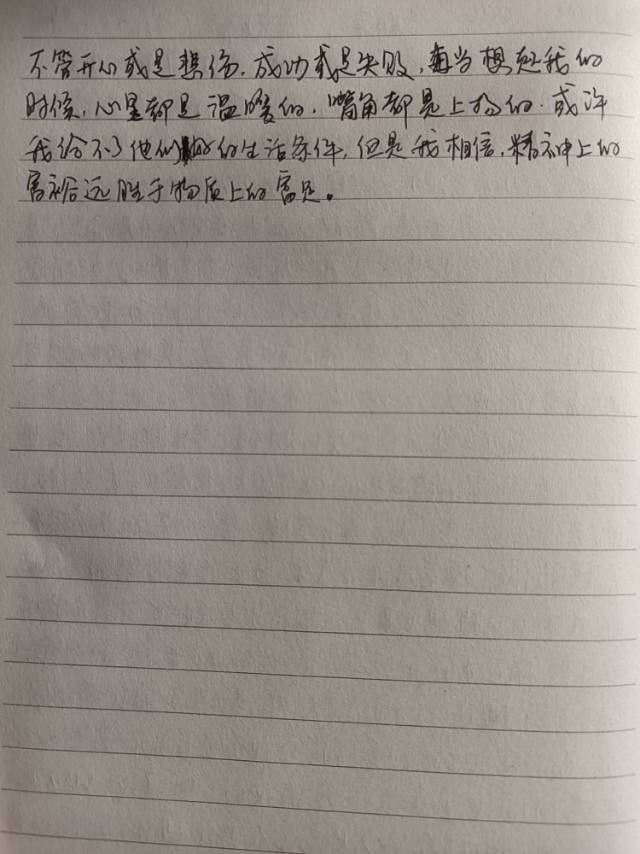 不管开心或是悲伤，成功或是失败，每当想起我的
时候，心里都是温暖的，嘴角都是上扬的。或许
我给不了他们好的生活条件，但是我相信，精神上的
富裕远胜于物质上的富足。